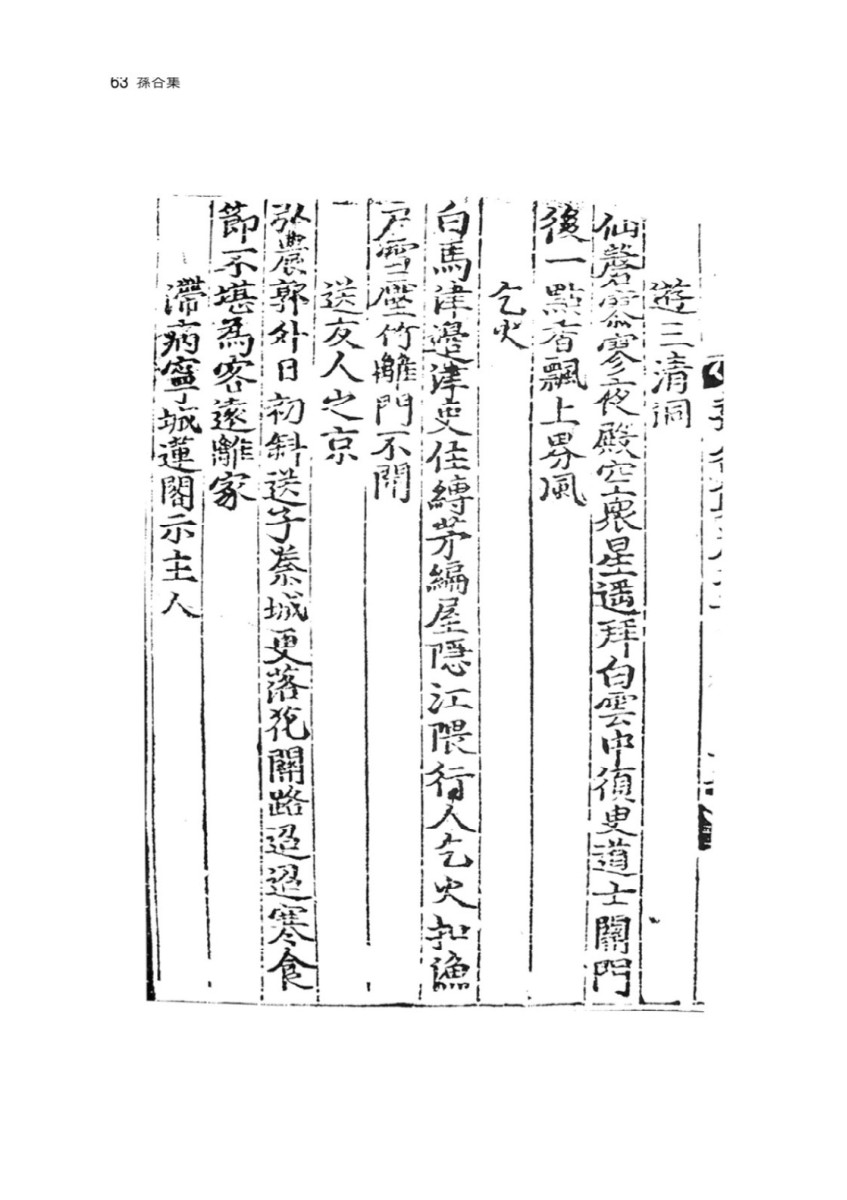 63 蓀谷集
遊三清洞
仙磬寥寥夜殿空衆星遥拜白雲中須臾道士關門
後一點香飄上界風
乞火
白馬津邊津吏住縛茅編屋隱江隈行人乞火扣漁
戶雪壓竹籬門不開
送友人之京
弘農郭外日初斜送子秦城更落花關路迢迢寒食
節不堪爲客遠離家
滯病寧城蓮閣示主人